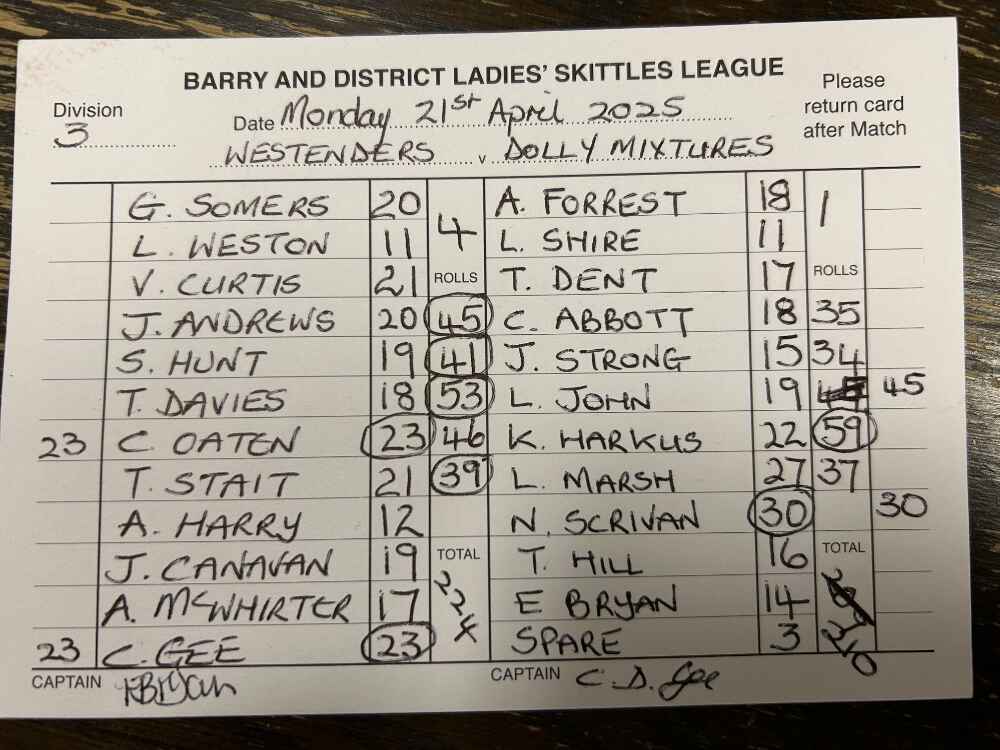 BARRY AND DISTRICT LADIES' SKITTLES LEAGUE
Please return card after Match
Division 3
Date Monday 21st April 2025
WESTENDERS v DOLLY MIXTURES
G. SOMERS 20 4 A. FORREST 18 1
L. WESTON 11 L. SHIRE 11
V. CURTIS 21 ROLLS T. DENT 17 ROLLS
J. ANDREWS 20 45 C. ABBOTT 18 35
S. HUNT 19 41 J. STRONG 15 34
T. DAVIES 18 53 L. JOHN 19 45
23 C. OATEN 23 46 K. HARKUS 22 59
T. STAIT 21 39 L. MARSH 27 37
A. HARRY 12 N. SCRIVAN 30 30
J. CANAVAN 19 TOTAL T. HILL 16 TOTAL
A. McWHIRTER 17 224 E BRYAN 14
23 C. GEE 23 SPARE 3 210
CAPTAIN KBryan CAPTAIN C. D. Gee